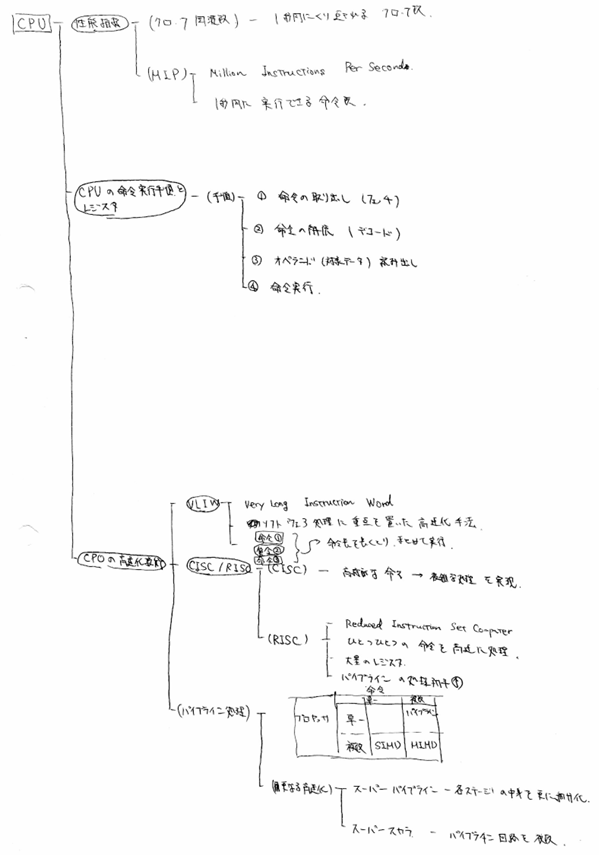 CPU
性能指標
(クロック周波数) - 1秒間にくり返される クロック数.
(MIP) Million Instructions Per Second.
1秒間に 実行できる 命令数.
CPUの命令実行手順と
レジスタ
(手順)
① 命令の取り出し (フェッチ)
② 命令の解読 (デコード)
③ オペランド (対象データ) 読み出し
④ 命令実行.
CPUの高速化
VLIW
Very Long Instruction Word
ソフトウェア処理に重点を置いた高速化手法.
命令①
命令②
命令③
命令長を長くとり, まとめて実行.
CISC / RISC
(CISC) - 高機能な命令 → 複雑な処理 を実現.
(RISC)
Reduced Instruction Set Computer
ひとつひとつの 命令を 高速に処理.
大量のレジスタ.
パイプライン の処理効率
(パイプライン処理)
命令
単一 複数
プロセッサ 単一 パイプライン
複数 SIMD MIMD
(更なる高速化)
スーパーパイプライン - 各ステージの中身を更に細分化.
スーパースカラ - パイプライン回路を複数.